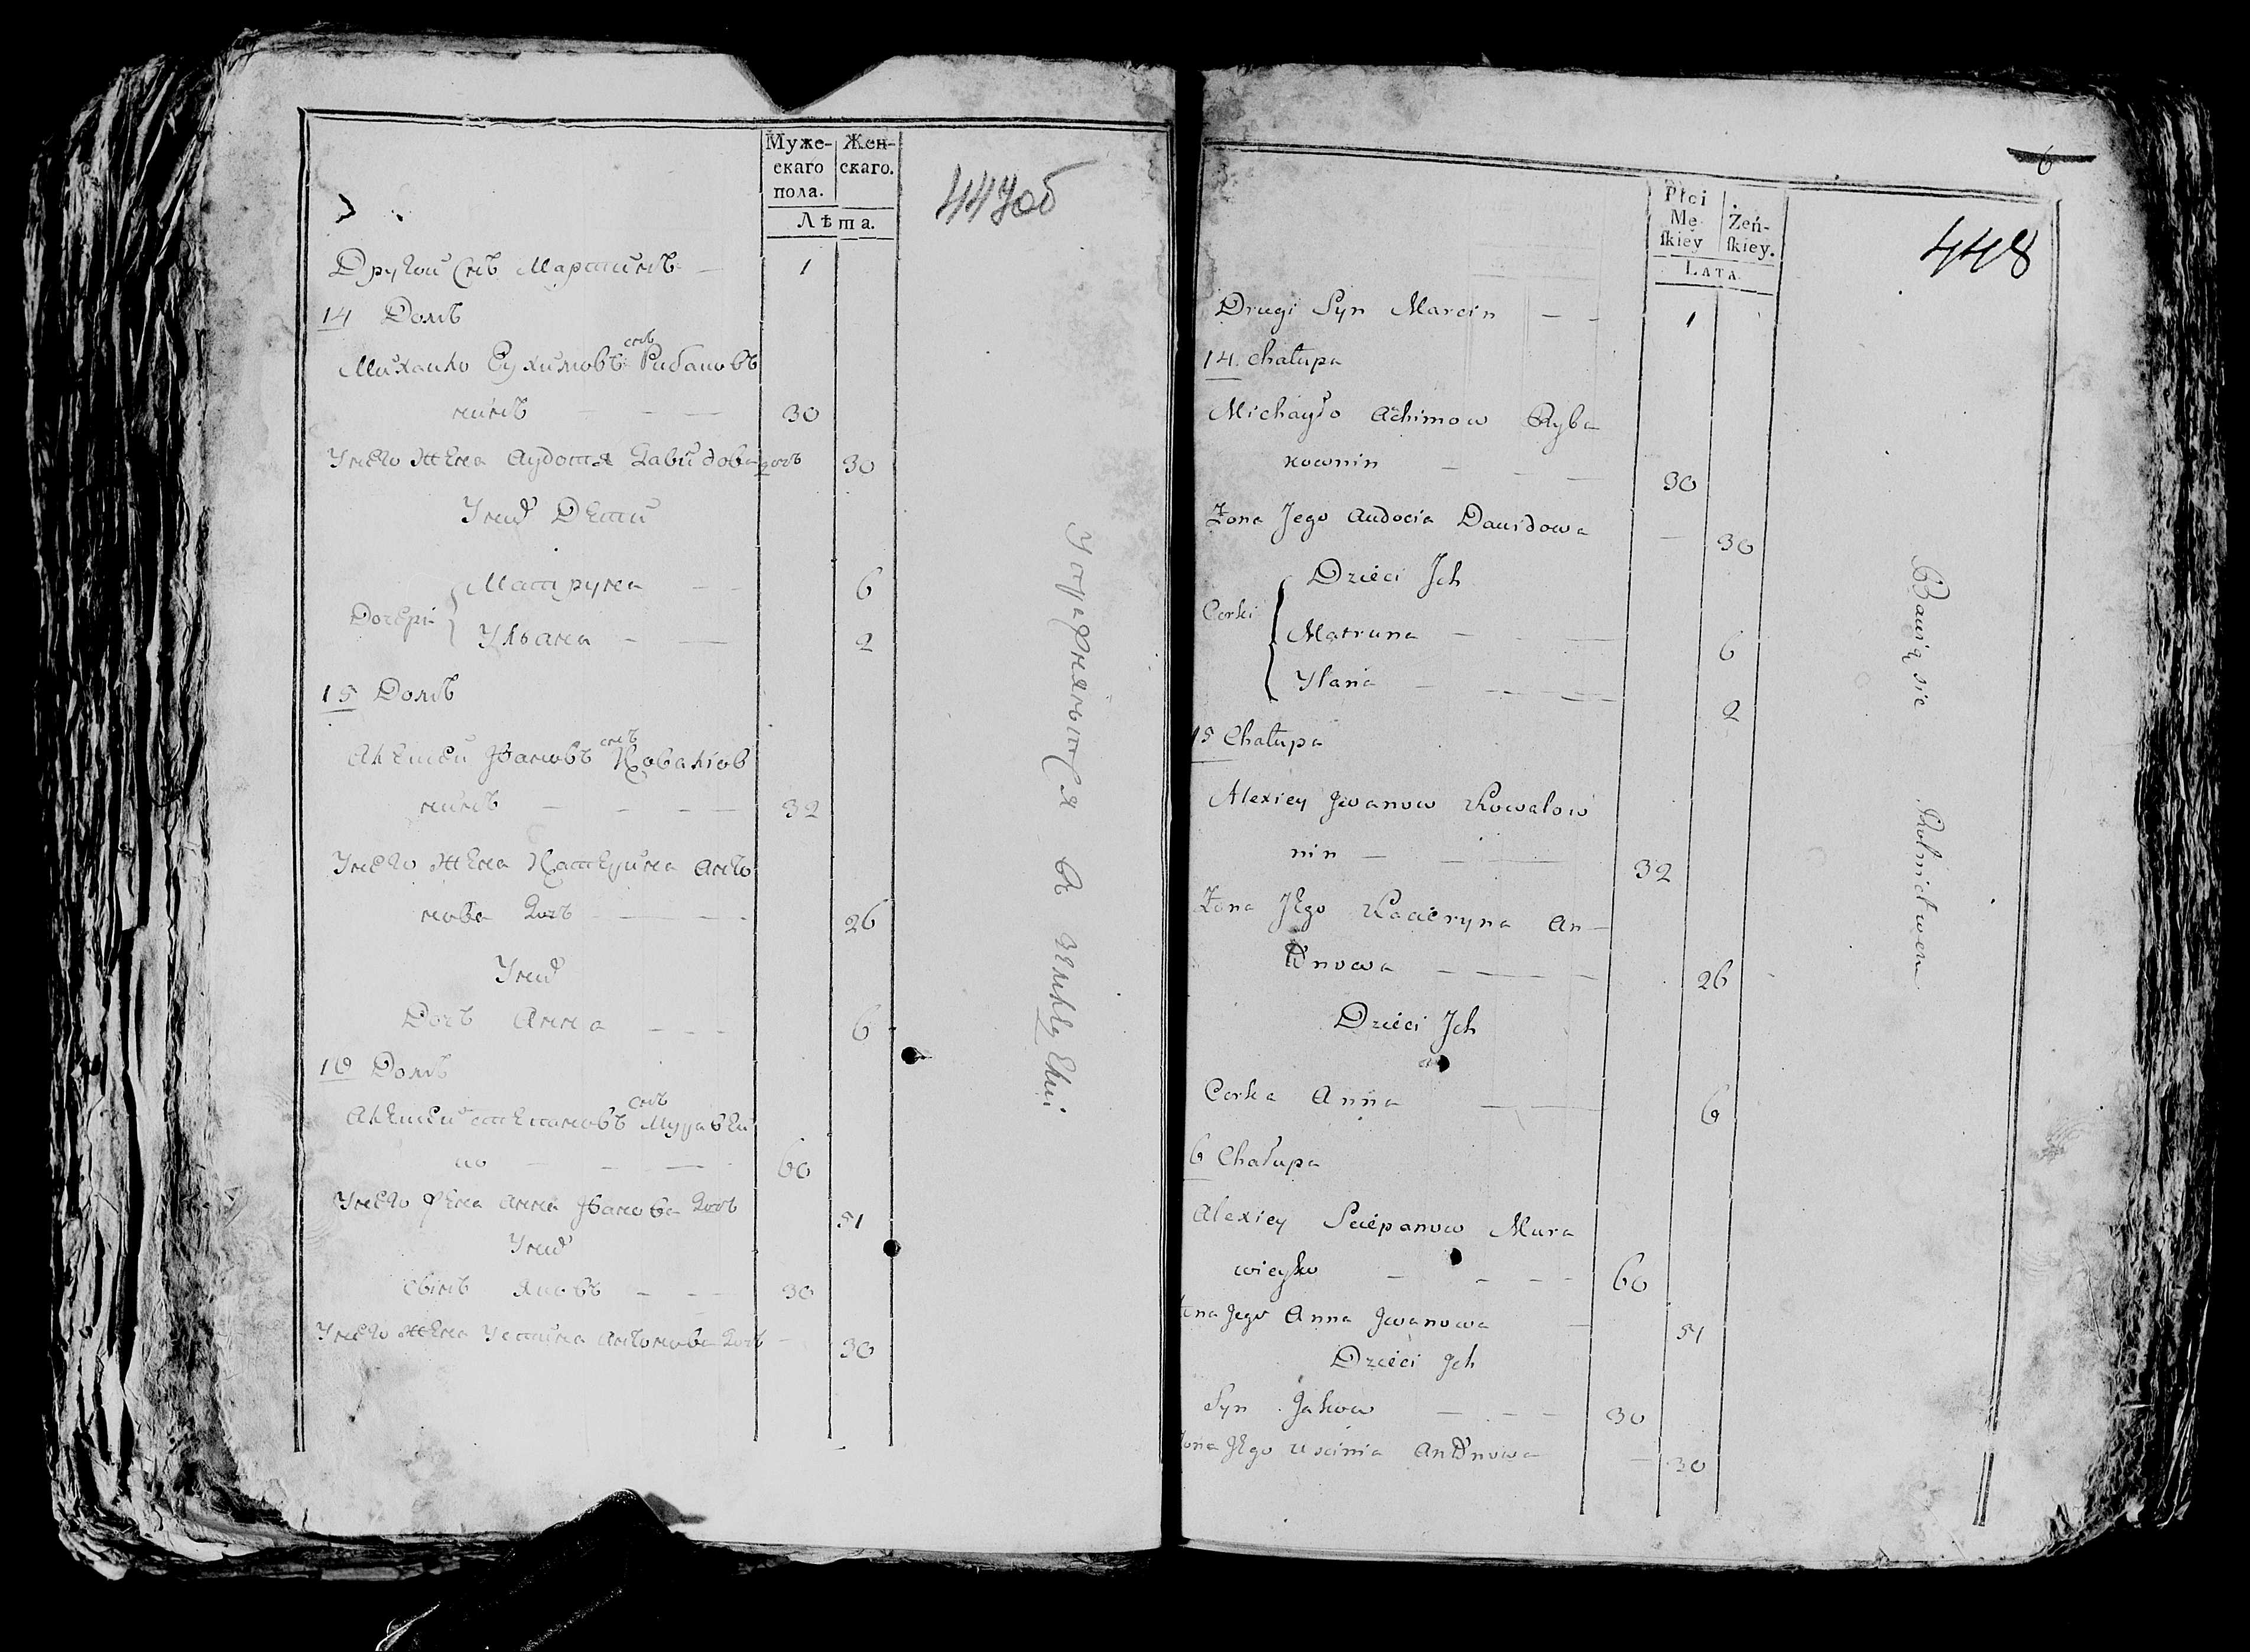 Муже-
скаго
пола.
Жен-
скаго.
Лѣта.
447об
Другой Снъ Мартинъ — 1
14 Домъ
снъ
Михайло Еухимовъ Рибаков
нинъ — — — 30
Унего жена Аудотя Давидова дочь 30
Уних Дети
Дочери
Матруна — 6
Ульана — — 2
15 Домъ
снъ
Алексей Јвановъ Ковалiов
нинъ — — — — 32
Унего жена Катерина Анто
нова дочъ — — — 26
Уних
Дочъ Анна — — — 6
16 Домъ
снъ
Алексей степановъ Муравей
ко — — — 60
Унего жена Анна Јванова дочъ 51
Уних
сынъ Яковъ — — — 30
Унего жена Устина Антонова дочъ — 30
6
448
Płci
Mę-
ſkiey
Żeń-
ſkiey.
LATA.
Drugi Syn Marcin — — 1
14. Chałupa
Michayło Achimow Ryba
kownin — — — 30
Żona Jego Audocia Dawidowa — 30
Dzieci Jch
Corki
Matruna — — — 6
Ylana — — — — 2
15 Chałupa
Alexiey Jwanow Kowalow
nin — — — 32
Żona Jego Kacieryna An—
tonowa — — — — 26
Dzieci Jch
Corka Anna — — 6
6 Chałupa
Alexiey Sciepanow Mura
wieyko — — — — 60
ona Jego Anna Jwanowa — 51
Dzieci Jch
Syn Jakow — — — 30
ona Jego Uscinia Antonowa — 30
Bawią sie Rolnictwem